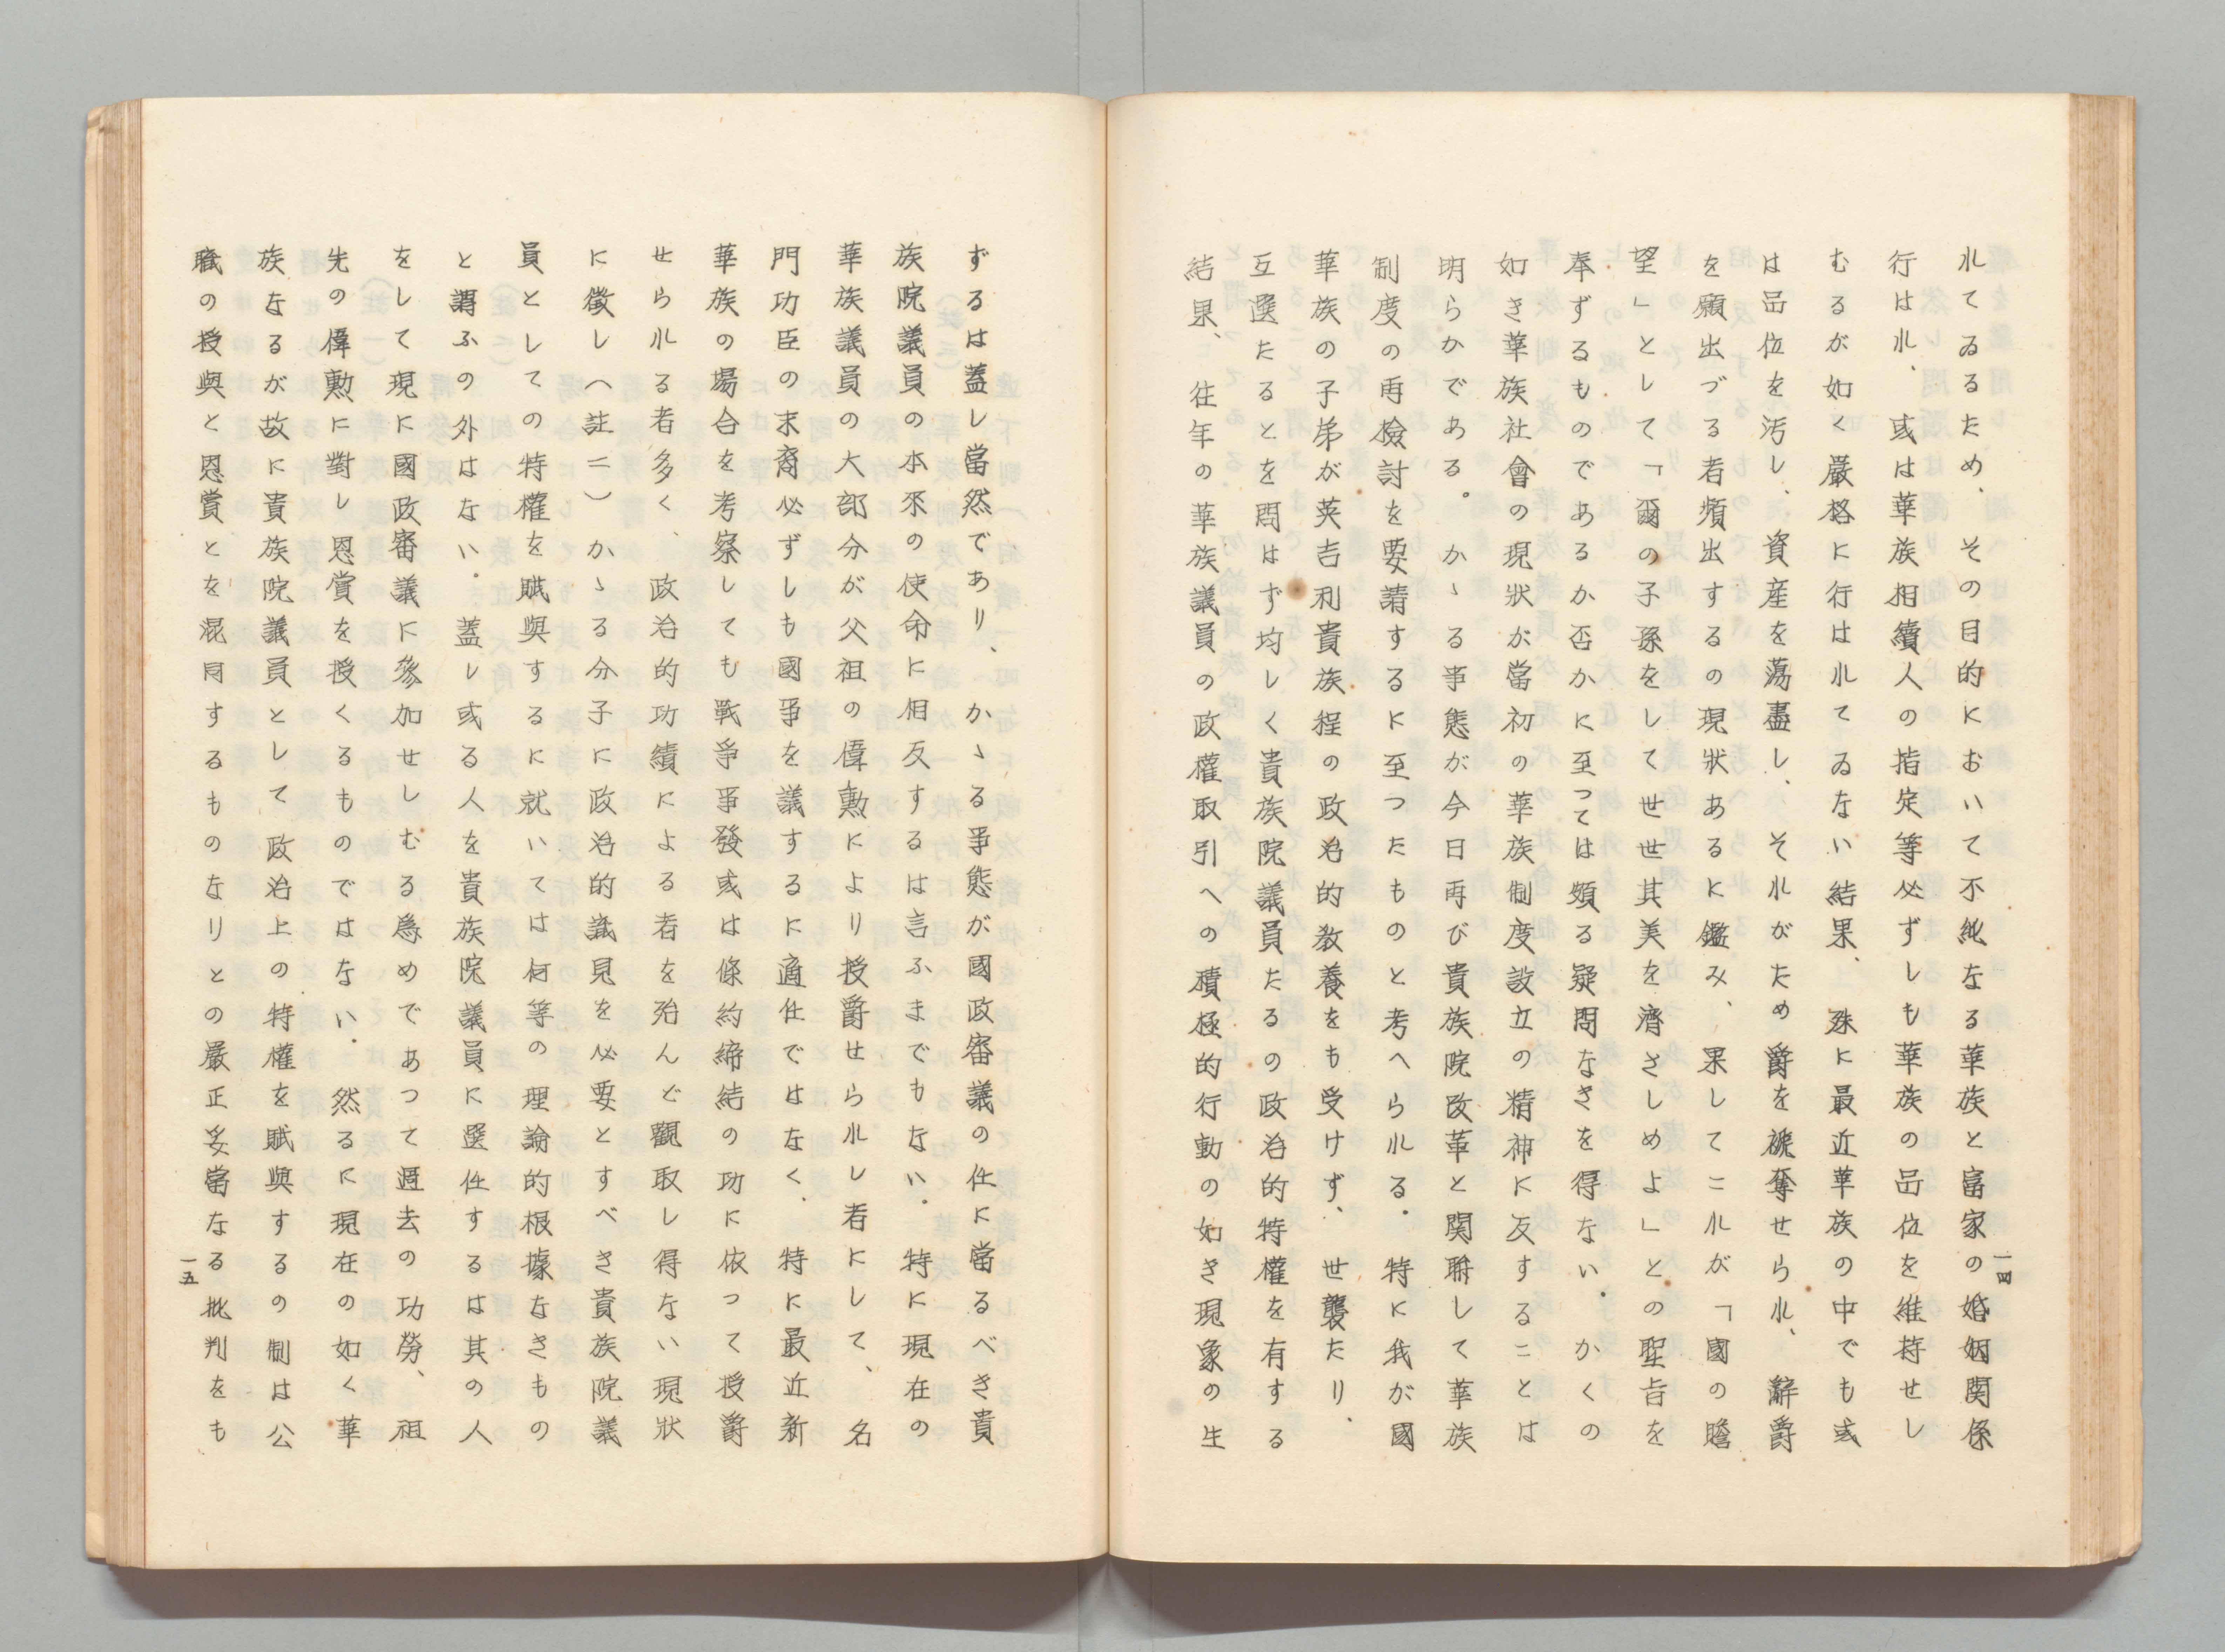 れてゐるため、その目的において不純なる華族と富家の婚姻関係
行はれ、或は華族相續人の指定等必ずしも華族の品位を維持せし
むるが如く嚴格に行はれてゐない結果、殊に最近華族の中でも或
は品位を汚し、資産を蕩盡し、それがため爵を褫奪せられ、辭爵
を願出づる者頻出するの現狀あるに鑑み、果してこれが「國の瞻
望」として「爾の子孫をして世世其美を濟さしめよ」との聖旨を
奉ずるものであるか否かに至つては頗る疑問なきを得ない。かくの
如き華族社會の現狀が當初の華族制度設立の精神に反することは
明らかである。かゝる事態が今日再び貴族院改革と関聯して華族
制度の再檢討を要請するに至つたものと考へられる。特に我が國
華族の子弟が英吉利貴族程の政治的教養をも受けず、世襲たり、
互選たるとを問はず均しく貴族院議員たるの政治的特權を有する
結果、往年の華族議員の政權取引への積極的行動の如き現象の生
一四
ずるは蓋し當然であり、かゝる事態が國政審議の任に當るべき貴
族院議員の本來の使命に相反するは言ふまでもない。特に現在の
華族議員の大部分が父祖の偉勲により授爵せられし者にして、名
門功臣の末裔必ずしも國事を議するに適任ではなく、特に最近新
華族の場合を考察しても戰爭事發或は條約締結の功に依つて授爵
せられる者多く、政治的功績による者を殆んど觀取し得ない現狀
に徴し（註二）かゝる分子に政治的識見を必要とすべき貴族院議
員としての特權を賦與するに就いては何等の理論的根據なきもの
と謂ふの外はない。蓋し或る人を貴族院議員に選任するは其の人
をして現に國政審議に參加せしむる爲めであつて過去の功勞、祖
先の偉勲に對し恩賞を授くるものではない。然るに現在の如く華
族なるが故に貴族院議員として政治上の特權を賦與するの制は公
職の授與と恩賞とを混同するものなりとの嚴正妥當なる批判をも
一五